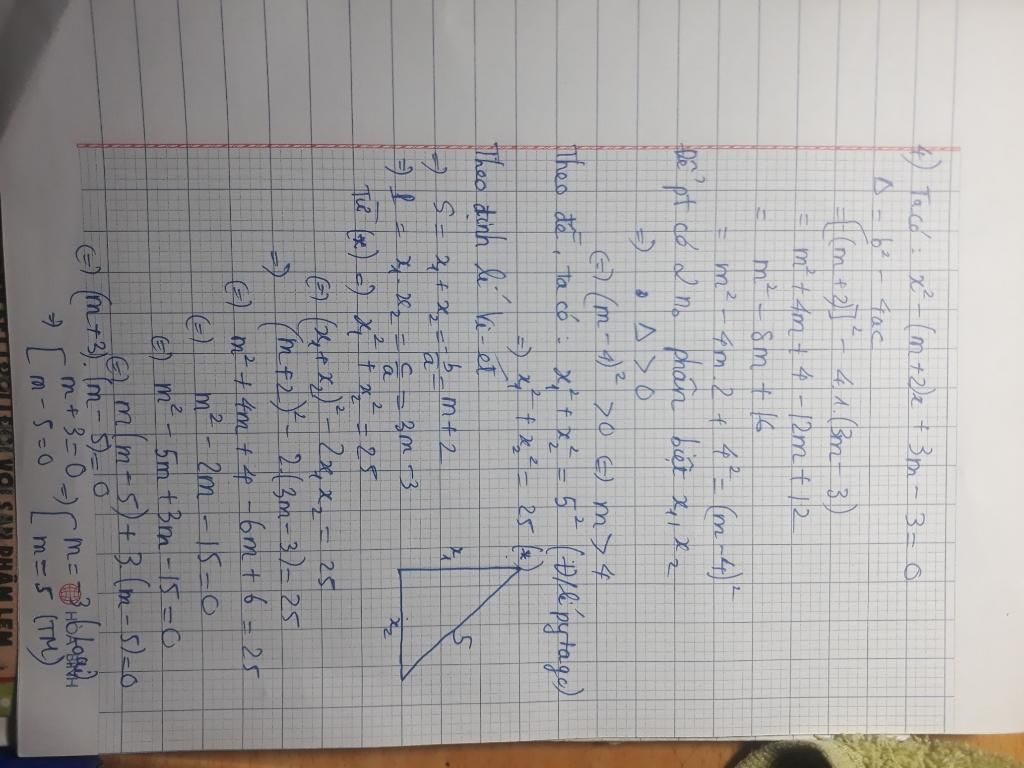 4) Ta có: x² - (m+2)x + 3m - 3 = 0
Δ = b² - 4ac
= [-(m+2)]² - 4.1.(3m-3)
= m² + 4m + 4 - 12m + 12
= m² - 8m + 16
= m² - 4m 2 + 4² = (m-4)²
Để pt có 2 n₀ phân biệt x₁, x₂
=> Δ > 0
(=) (m-4)² > 0 (=) m > 4
Theo đề, ta có: x₁² + x₂² = 5² (Đ/lí pytago)
=> x₁² + x₂² = 25 (*)
x₁
x₂
5
Theo định lí Vi-ét
=> S = x₁ + x₂ = b/a = m + 2
=> P = x₁ . x₂ = c/a = 3m - 3
Từ (*) => x₁² + x₂² = 25
(=) (x₁ + x₂)² - 2x₁x₂ = 25
=> (m+2)² - 2(3m-3) = 25
(=) m² + 4m + 4 - 6m + 6 = 25
(=) m² - 2m - 15 = 0
(=) m² - 5m + 3m - 15 = 0
(=) m(m-5) + 3(m-5) = 0
(=) (m+3).(m-5) = 0
=> [ m + 3 = 0 => [ m = -3
[ m - 5 = 0 [ m = 5 (TM)